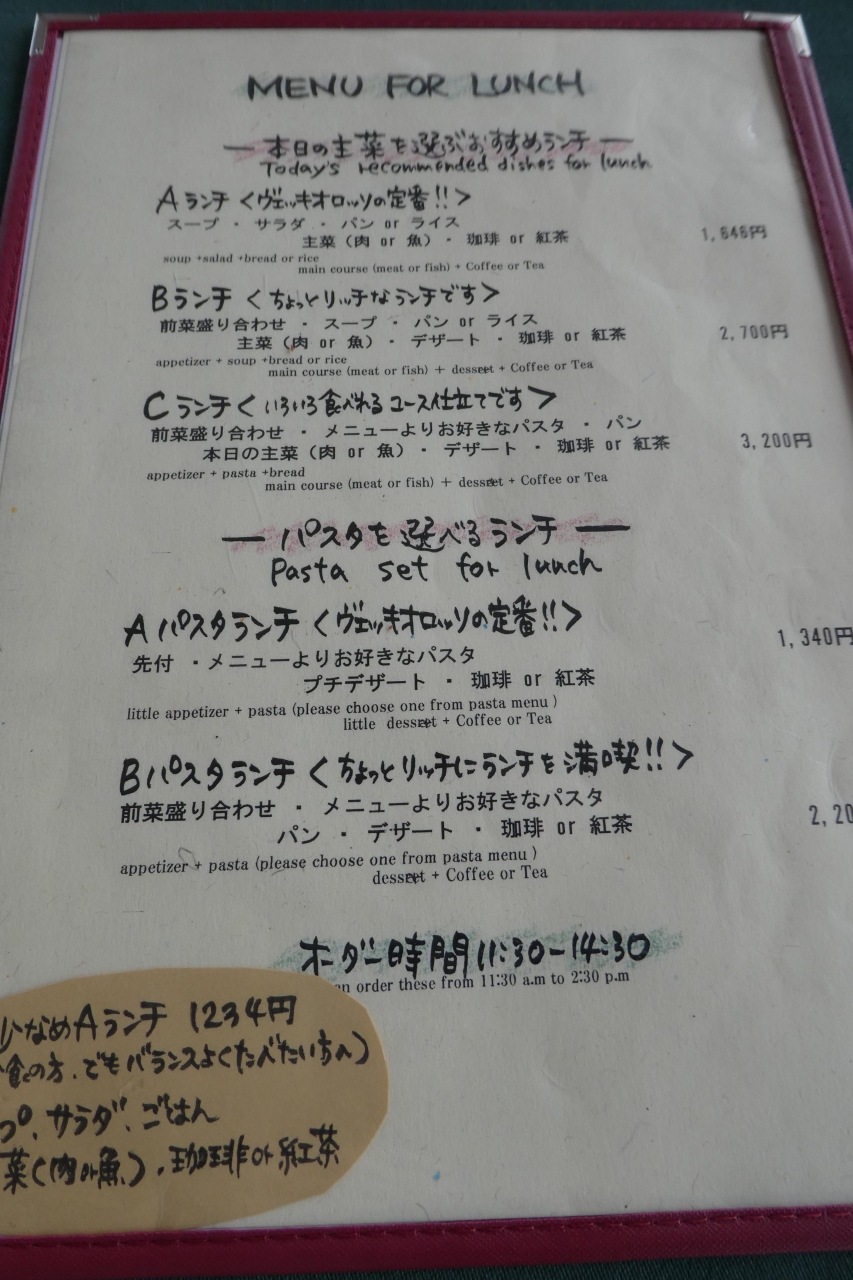 MENU FOR LUNCH
― 本日の主菜を選ぶおすすめランチ ―
Today's recommended dishes for lunch
Aランチ <ヴェッキオロッソの定番!!>
スープ ・ サラダ ・ パン or ライス
主菜(肉 or 魚)・ 珈琲 or 紅茶 1,646円
soup +salad +bread or rice
main course (meat or fish) + Coffee or Tea
Bランチ <ちょっとリッチなランチです>
前菜盛り合わせ ・ スープ ・ パン or ライス
主菜(肉 or 魚)・ デザート ・ 珈琲 or 紅茶 2,700円
appetizer + soup +bread or rice
main course (meat or fish) + dessret + Coffee or Tea
Cランチ <いろいろ食べれるコース仕立てです>
前菜盛り合わせ ・ メニューよりお好きなパスタ ・ パン
本日の主菜(肉 or 魚)・ デザート ・ 珈琲 or 紅茶 3,200円
appetizer + pasta +bread
main course (meat or fish) + dessret + Coffee or Tea
― パスタを選べるランチ ―
Pasta set for lunch
Aパスタランチ <ヴェッキオロッソの定番!!>
先付 ・メニューよりお好きなパスタ 1,340円
プチデザート ・ 珈琲 or 紅茶
little appetizer + pasta (please choose one from pasta menu )
little dessret + Coffee or Tea
Bパスタランチ <ちょっとリッチにランチを満喫!!>
前菜盛り合わせ ・ メニューよりお好きなパスタ 2,20
パン ・ デザート ・ 珈琲 or 紅茶
appetizer + pasta (please choose one from pasta menu )
dessret + Coffee or Tea
オーダー時間11:30-14:30
an order these from 11:30 a.m to 2:30 p.m
少なめAランチ 1234円
食の方、でもバランスよくたべたい方へ)
プ、サラダ、ごはん
菜(肉or魚)、珈琲or紅茶